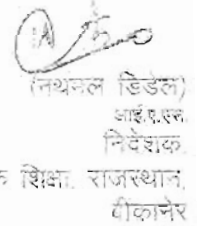 (नथमल डिडेल)
आई.ए.एस.
निदेशक,
क शिक्षा, राजस्थान,
बीकानेर